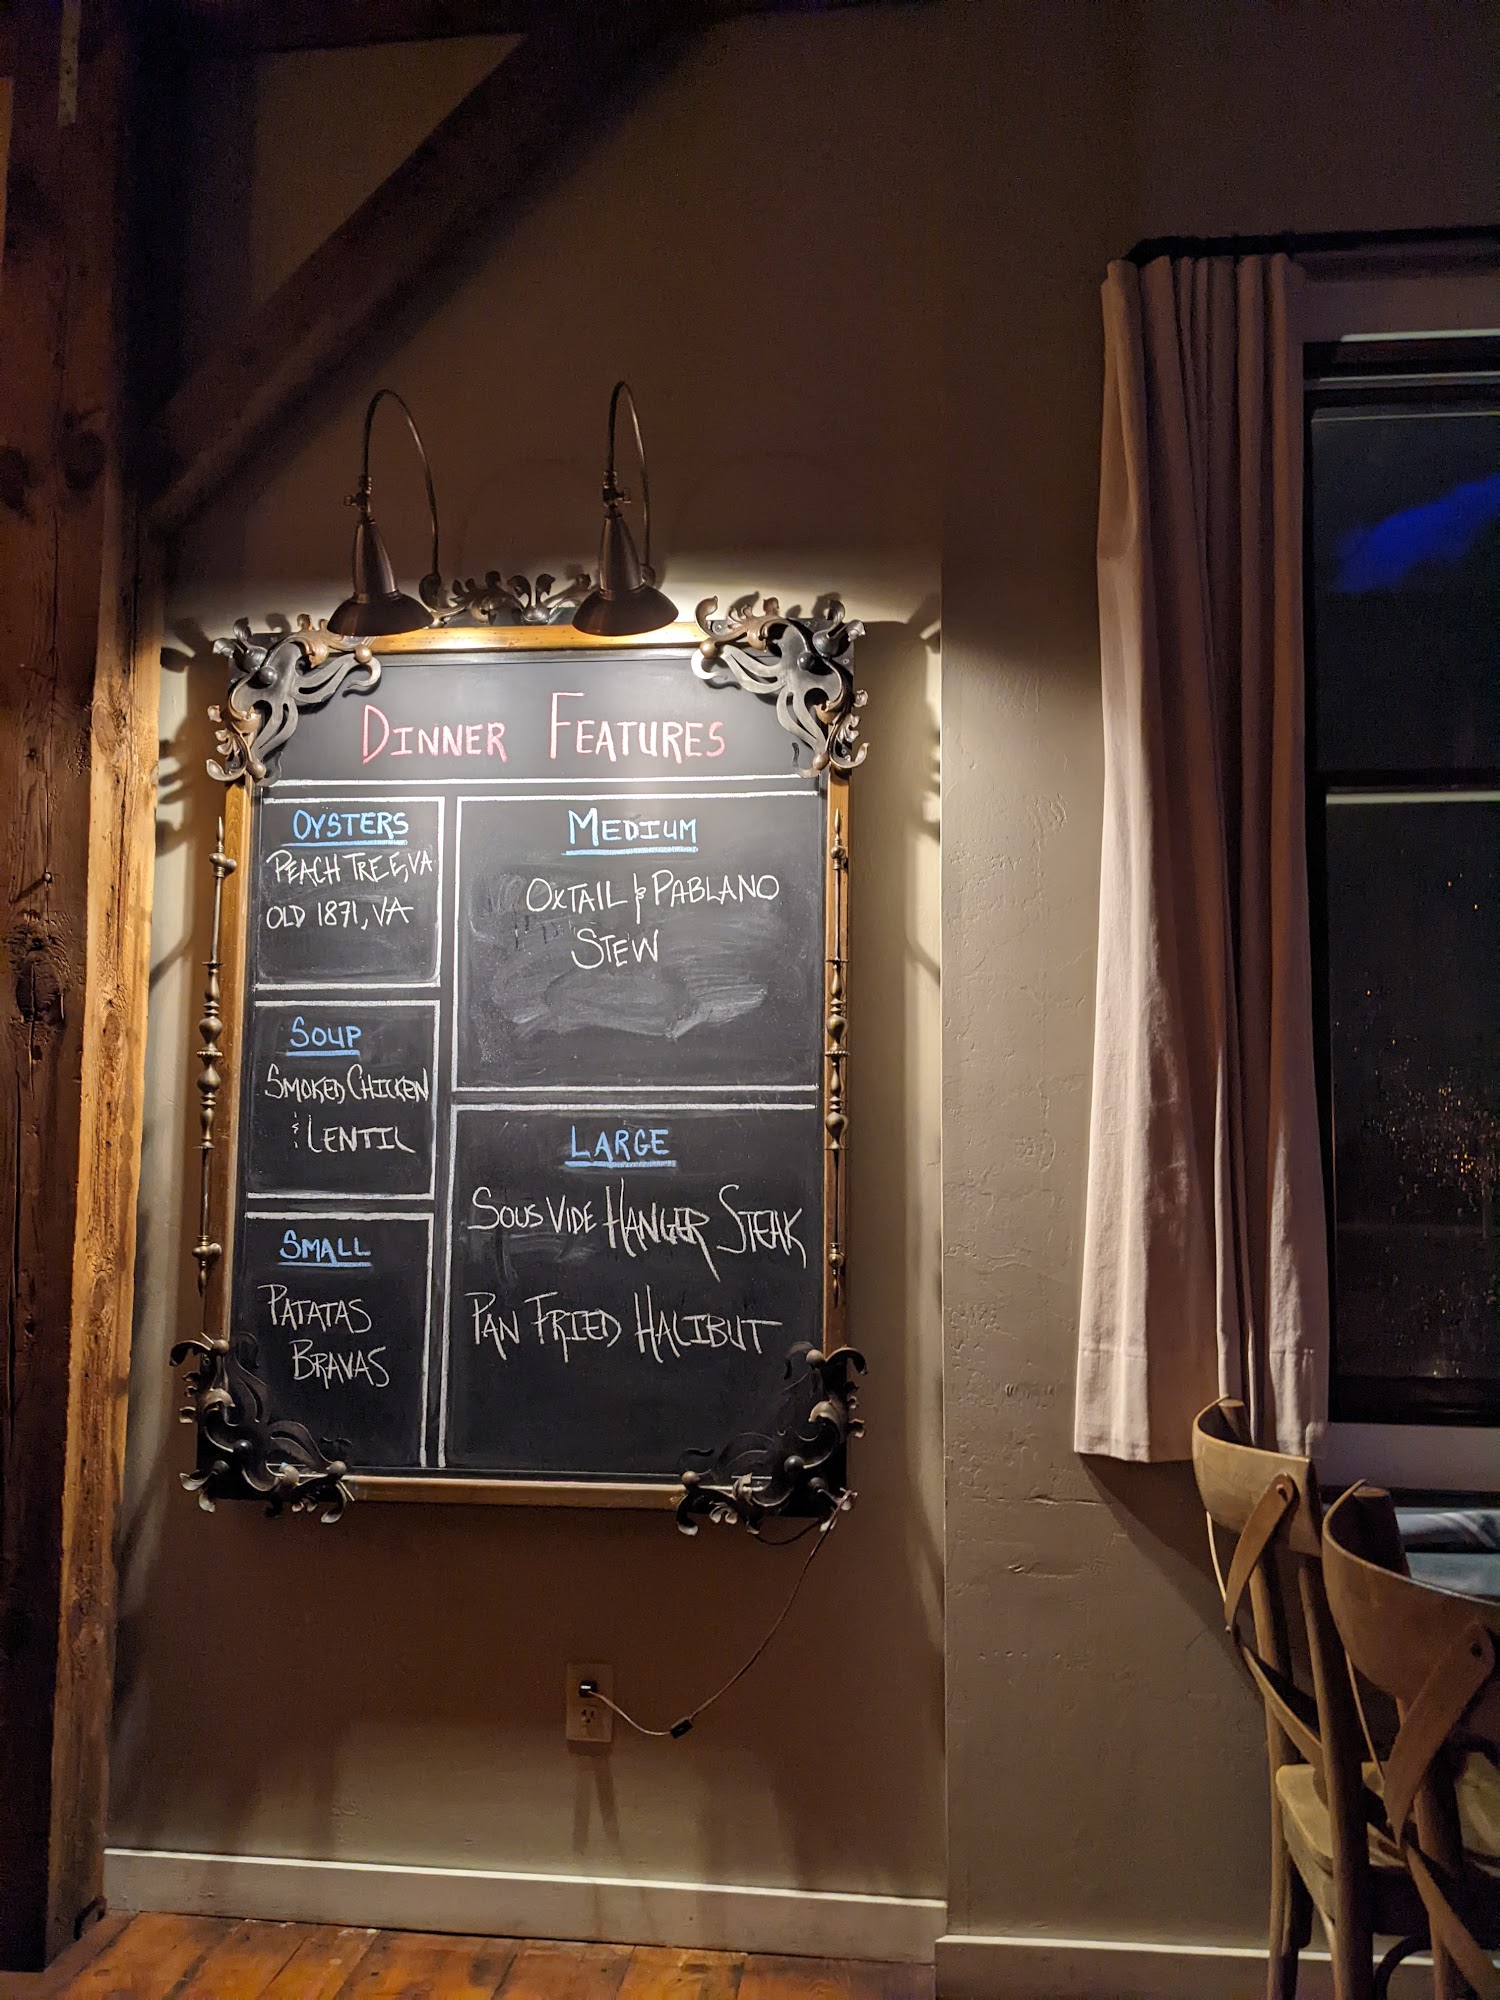 DINNER FEATURES
OYSTERS
PEACH TREE, VA
OLD 1871, VA
SOUP
SMOKED CHICKEN
& LENTIL
SMALL
PATATAS
BRAVAS
MEDIUM
OXTAIL & PABLANO
STEW
LARGE
SOUS VIDE HANGER STEAK
PAN FRIED HALIBUT